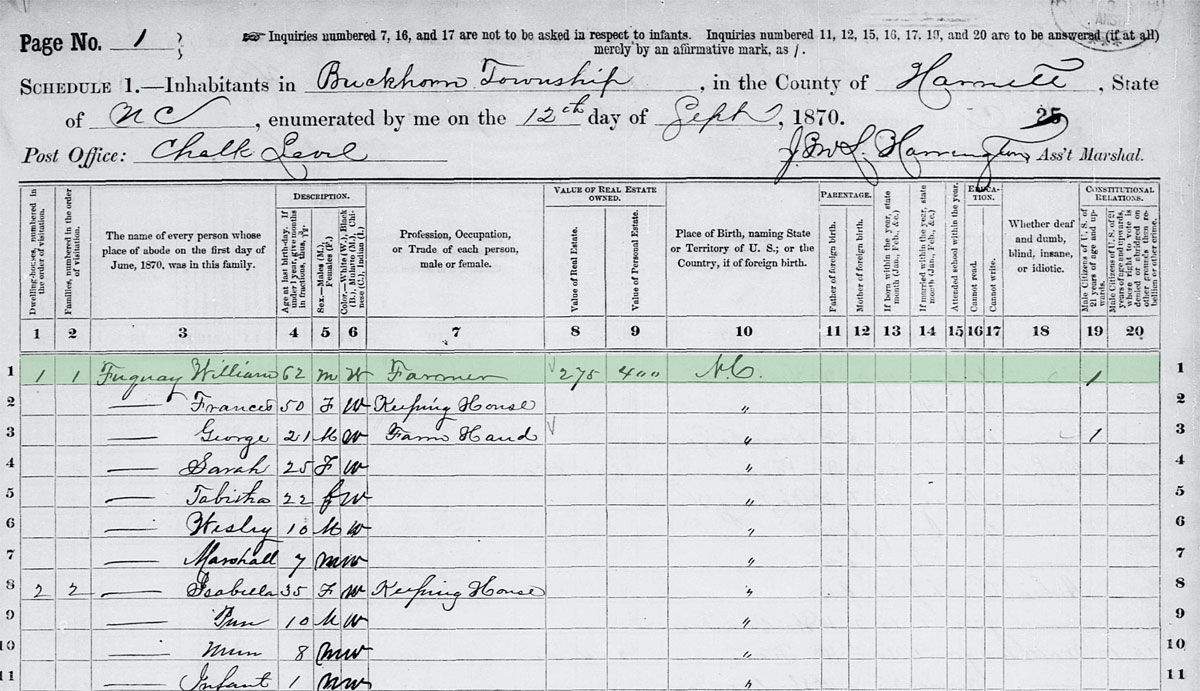 Page No. 1
☞ Inquiries numbered 7, 16, and 17 are not to be asked in respect to infants. Inquiries numbered 11, 12, 15, 16, 17, 19, and 20 are to be answered (if at all)
merely by an affirmative mark, as /.
SCHEDULE 1.—Inhabitants in Buckhorn Township, in the County of Harnett, State
of N C, enumerated by me on the 12th day of Sept, 1870.
25
Post Office: Chalk Level
Harrington Ass't Marshal.
Dwelling-houses, numbered in the order of visitation.
Families, numbered in the order of visitation.
The name of every person whose place of abode on the first day of June, 1870, was in this family.
DESCRIPTION.
Age at last birth-day. If under 1 year, give months in fractions, thus,
Sex.—Males (M.), Females (F.)
Color.—White (W.), Black (B.), Mulatto (M.), Chinese (C.), Indian (I.)
Profession, Occupation, or Trade of each person, male or female.
VALUE OF REAL ESTATE OWNED.
Value of Real Estate.
Value of Personal Estate.
Place of Birth, naming State or Territory of U. S.; or the Country, if of foreign birth.
PARENTAGE.
Father of foreign birth.
Mother of foreign birth.
If born within the year, state month (Jan., Feb., &c.)
If married within the year, state month (Jan., Feb., &c.)
Attended school within the year.
EDUCATION.
Cannot read.
Cannot write.
Whether deaf and dumb, blind, insane, or idiotic.
CONSTITUTIONAL RELATIONS.
Male Citizens of U. S. of 21 years of age and upwards.
Male Citizens of U. S. of 21 years of age and upwards, where right to vote is denied or abridged on other grounds than rebellion or other crime.
1 2 3 4 5 6 7 8 9 10 11 12 13 14 15 16 17 18 19 20
1 1 1 Fuquay William 62 M W Farmer 275 400 N.C. 1 1
2 — Frances 50 F W Keeping House " 2
3 — George 21 M W Farm Hand " 1 3
4 — Sarah 25 F W " 4
5 — Tabitha 22 f W " 5
6 — Wesley 10 M W " 6
7 — Marshall 7 m W " 7
8 2 2 — Isabella 35 F W Keeping House " 8
9 — 10 M W " 9
10 — 8 m W " 10
11 — Infant 1 m W " 11